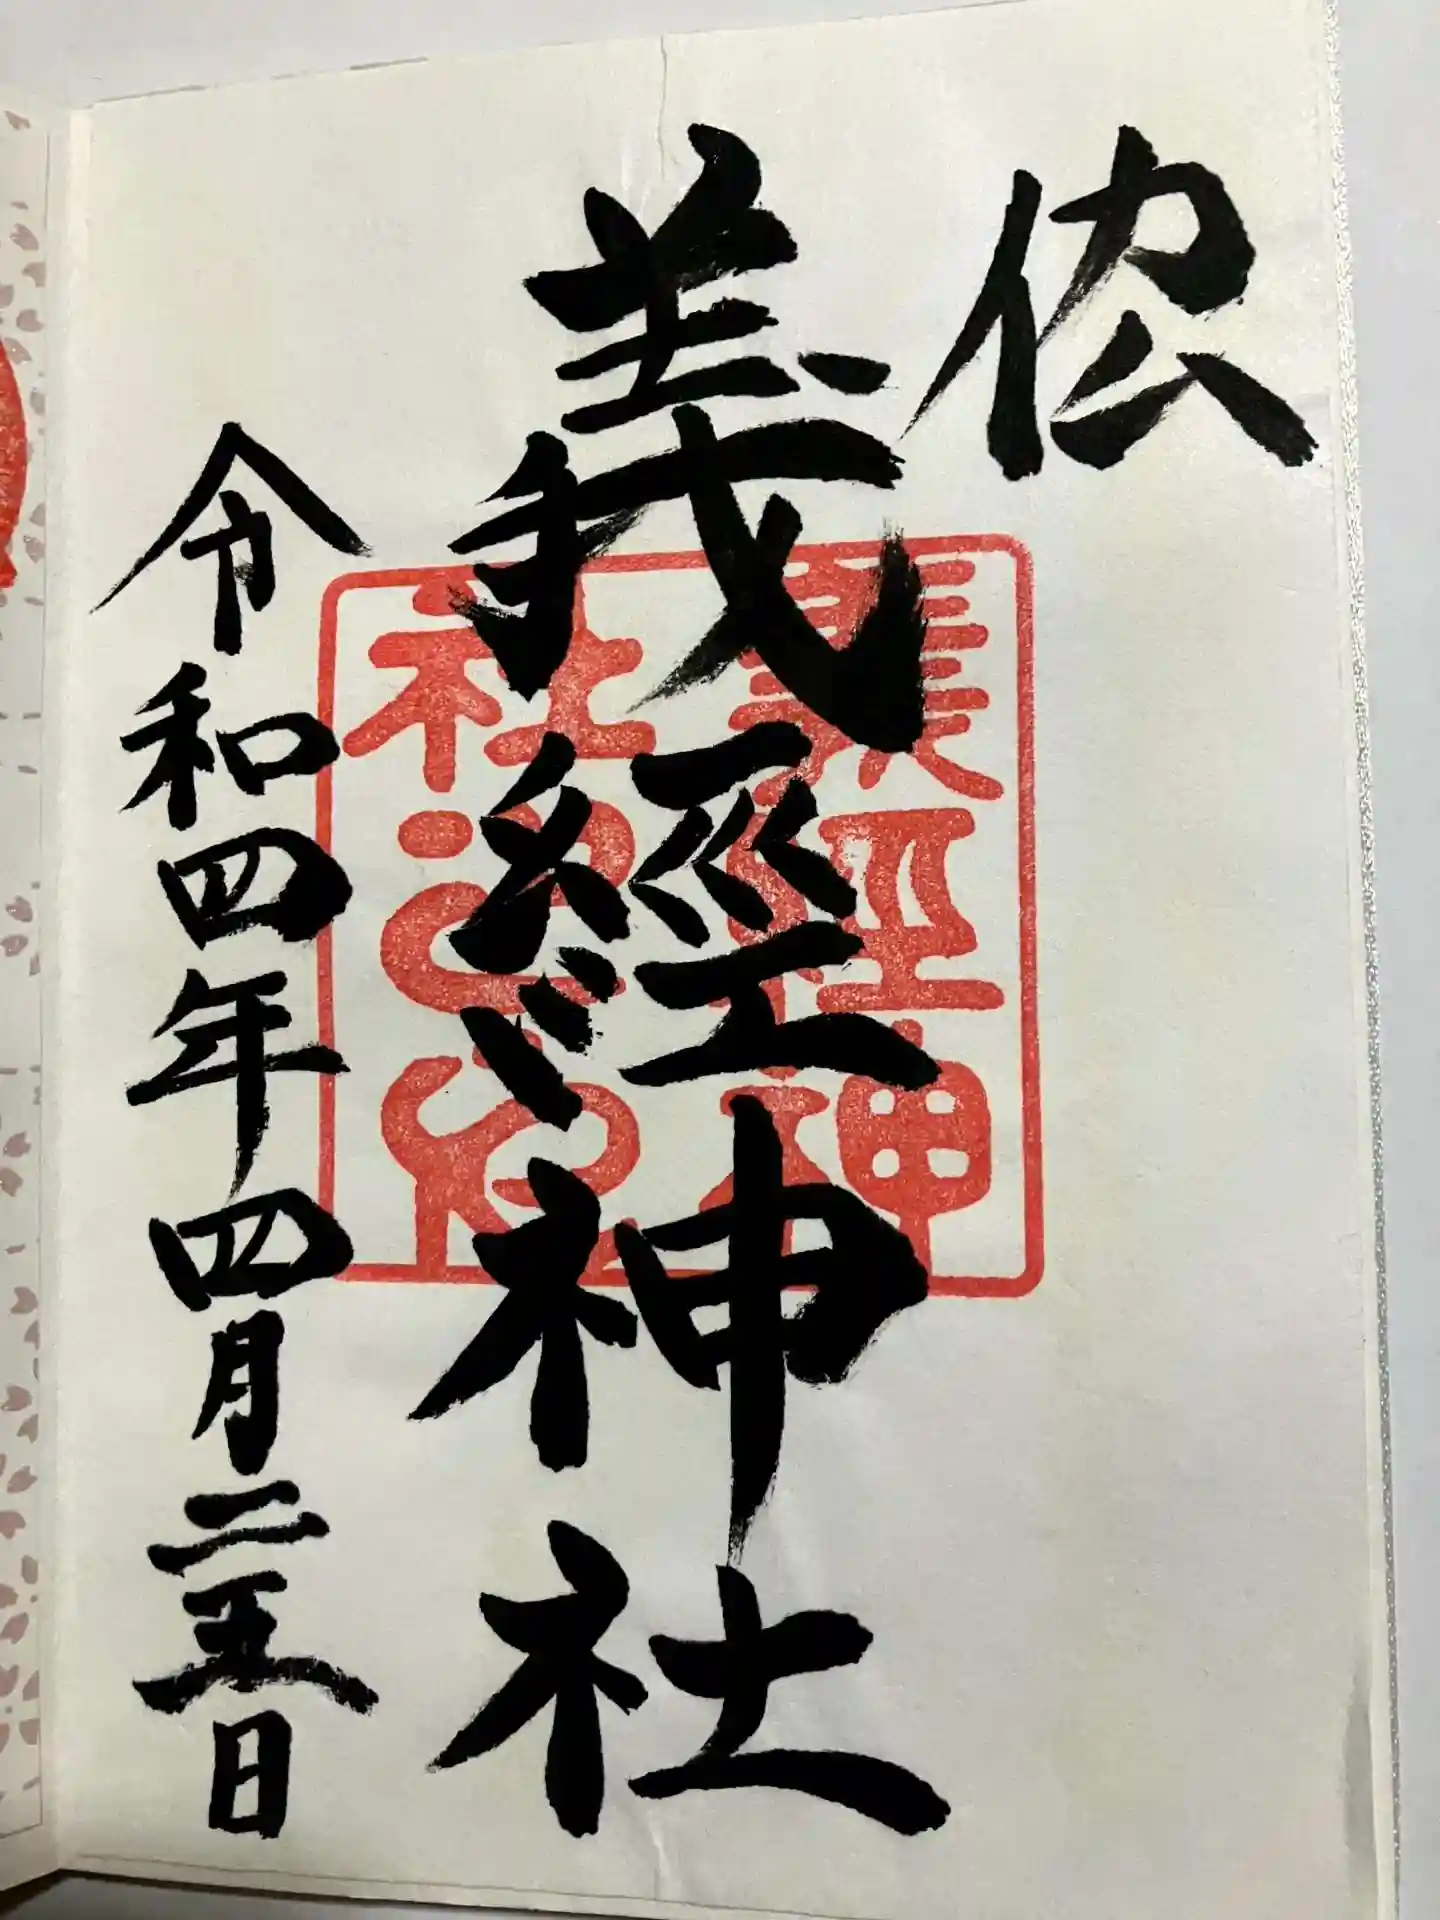 義經神社
義經神
社之印
令和四年四月二五日